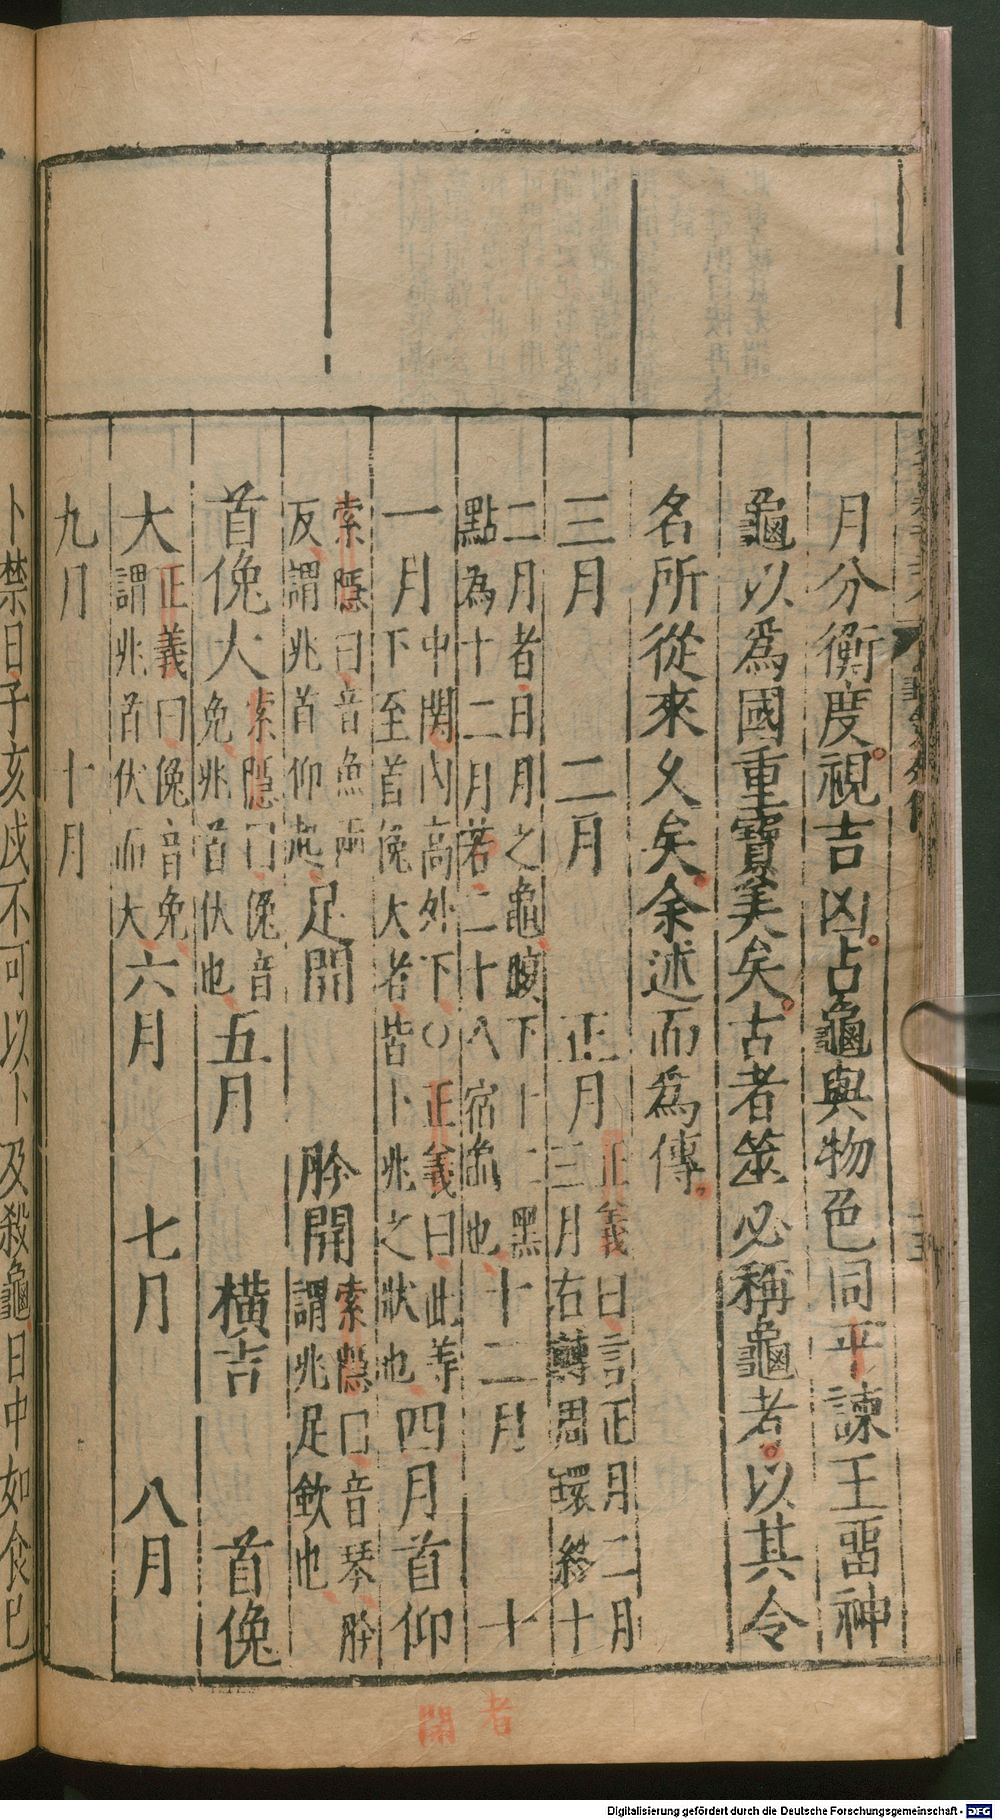 月分衡度視吉凶占龜與物色同平諫王畱神
龜以爲國重寶美矣古者筮必稱龜者以其令
名所從來久矣余述而為傳
三月 二月 正月 正義曰言正月二月
三月右轉周環終十
二月者日月之龜腹下十二黑
點為十二月若二十八宿龜也 十二月 十
一月 中関內高外下○正義曰此等
下至首俛大者皆卜兆之狀也 四月首仰
索隱曰音魚兩
反謂兆首仰起 足開 肣開 索隱曰音琴肣
謂兆足歛也
首俛大 索隱曰俛音
免兆首伏也 五月 橫吉 首俛
大 正義曰俛音免
謂兆首伏而大 六月 七月 八月
九月 十月
卜禁日子亥戌不可以卜及殺龜日中如食已
者
開
Digitalisierung gefördert durch die Deutsche Forschungsgemeinschaft - DFG